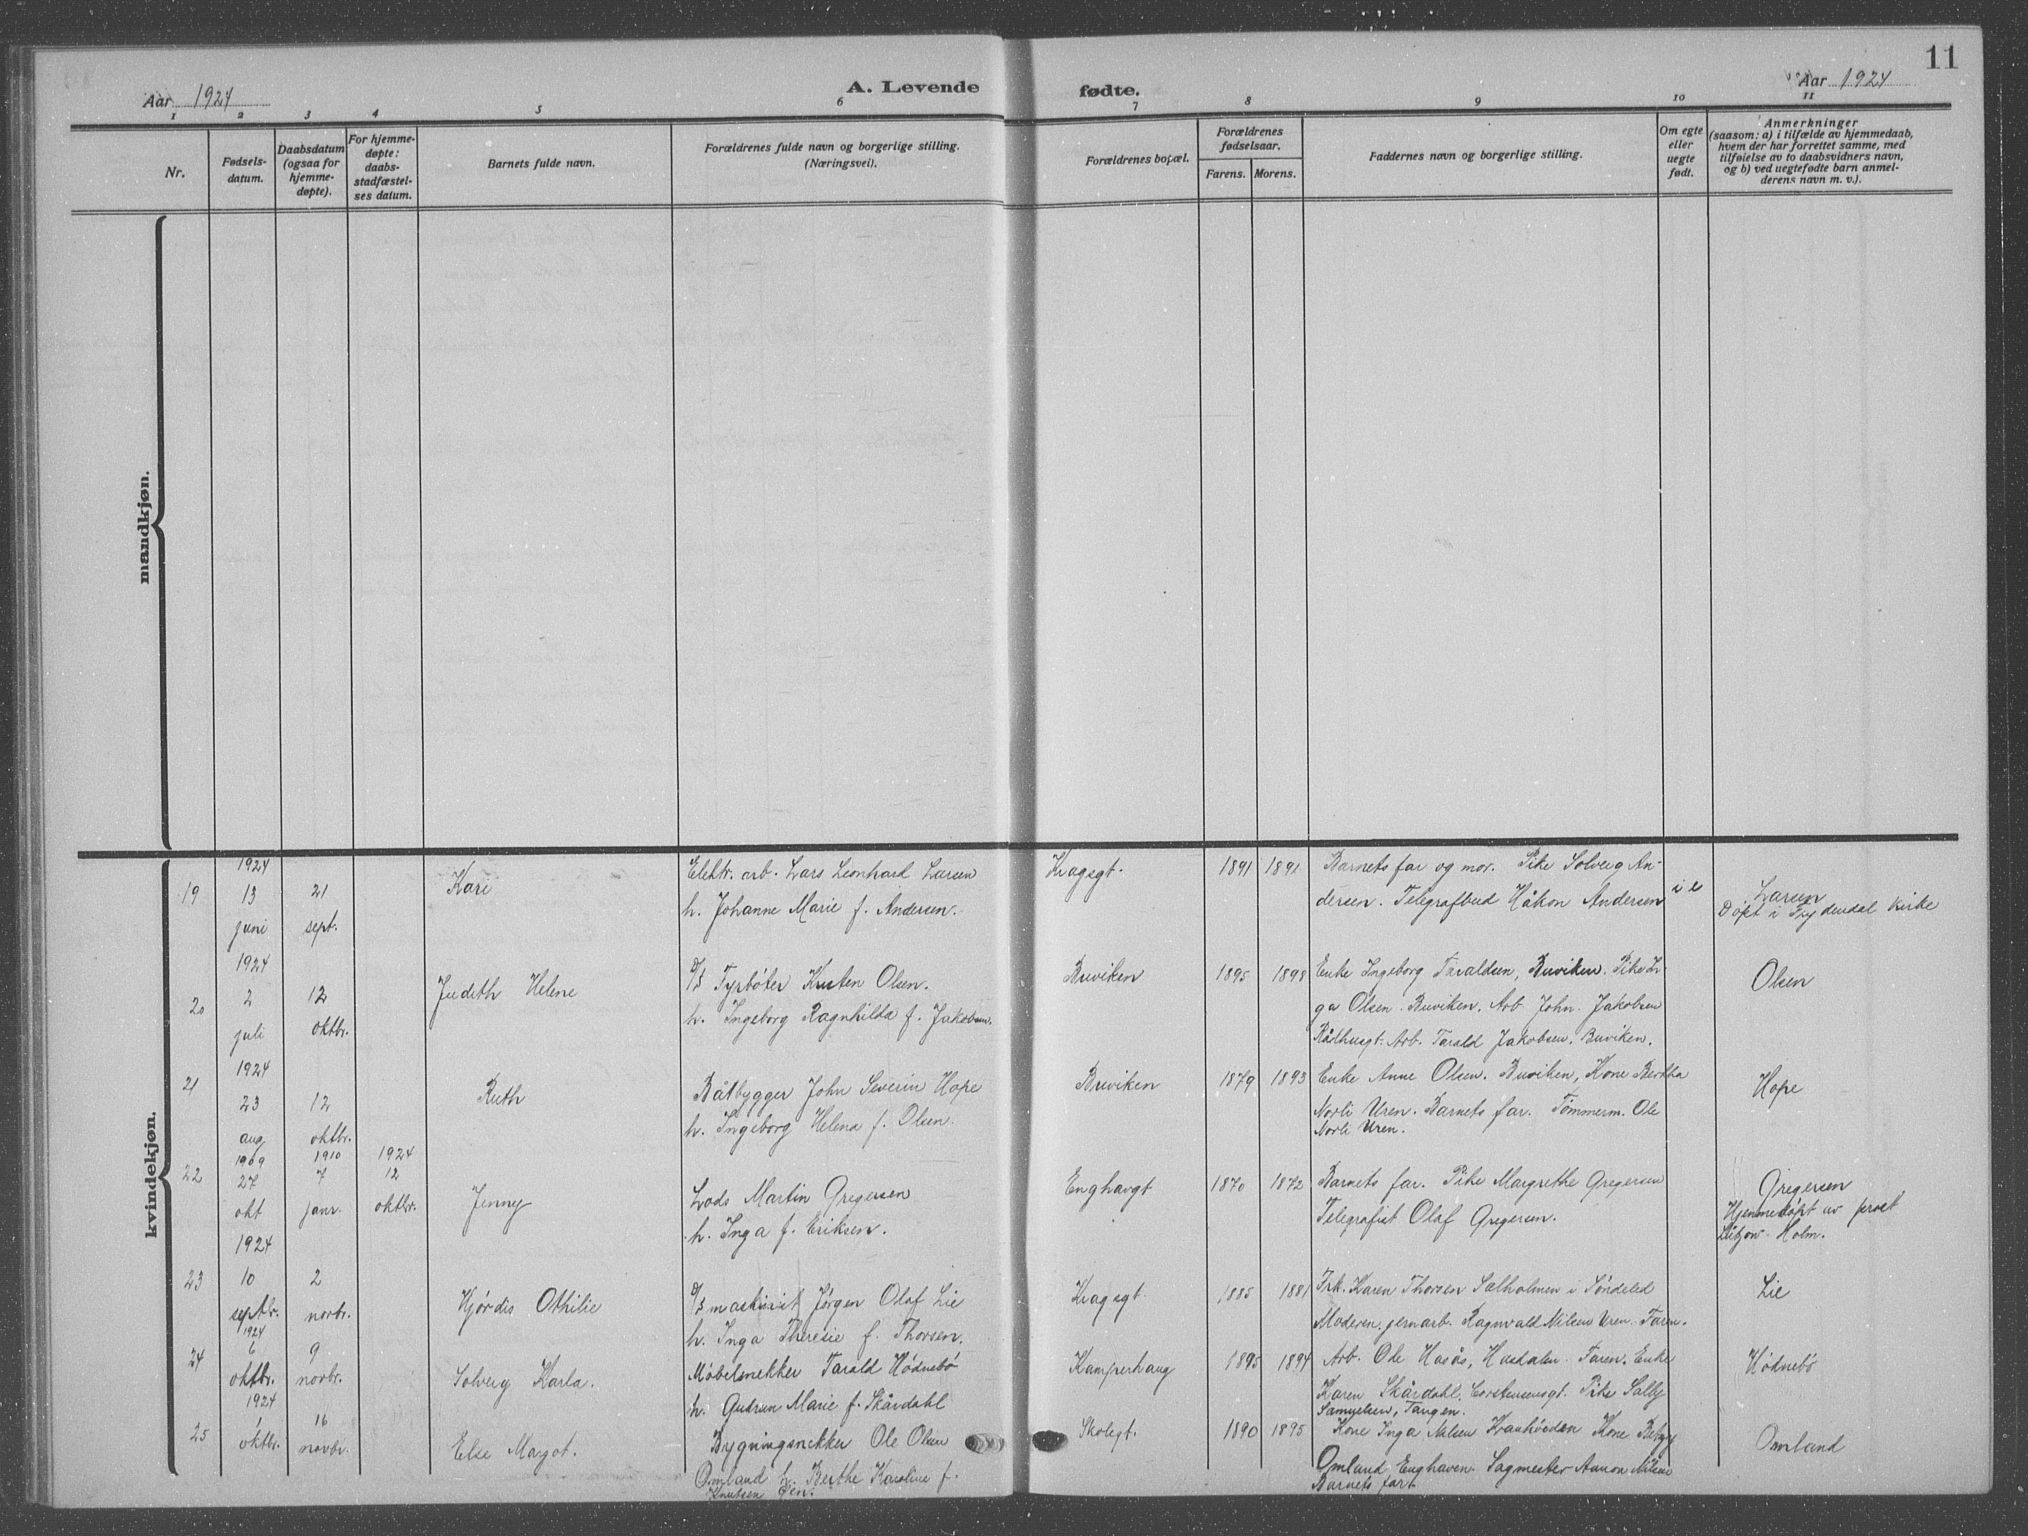 11
Aar 1924
A. Levende fødte.
Aar 1924
1 2 3 4 5 6 7 8 9 10 11
Nr.
Fødsels-
datum.
Daabsdatum
(ogsaa for
hjemme-
døpte).
For hjemme-
døpte:
daabs-
stadfæstel-
ses datum.
Barnets fulde navn.
Forældrenes fulde navn og borgerlige stilling.
(Næringsvei).
Forældrenes bopæl.
Forældrenes
fødselsaar.
Farens. Morens.
Faddernes navn og borgerlige stilling.
Om egte
eller
uegte
født.
Anmerkninger
(saasom: a) i tilfælde av hjemmedaab,
hvem der har forrettet samme, med
tilføielse av to daabsvidners navn,
og b) ved uegtefødte barn anmel-
derens navn m. v.).
mandkjøn.
kvindekjøn.
19
1924
13
juni
21
sept.
Kari
Elektr. arb. Lars Leonhard Larsen
h. Johanne Marie f. Andersen.
Kragsgt.
1891 1891
Barnets far og mor. Pike Solveig An-
dersen. Telegrafbud Håkon Andersen
Larsen
Døpt i kirke
20
1924
2
juli
12
oktbr.
Judith Helene
Fyrbøter Kristen Olsen.
h. Ingeborg Ragnhilda f. Jakobsen.
Buviken
1895 1898
Enke Ingeborg Taraldsen, Buviken. Pike In-
ga Olsen. Buviken. Arb. John Jakobsen
Rådhusgt. Arb. Tarald Jakobsen. Buviken.
Olsen
21
1924
23
aug
12
oktbr.
Ruth
Båtbygger John Severin Hope
h. Ingeborg Helena f. Olsen.
Buviken
1879 1893
Enke Anne Olsen. Buviken, Kone Bertha
Norli Uren. Barnets far. Tømmerm. Ole
Norli Uren.
Hope
22
1909
27
okt
1910
7
janr.
1924
12
oktbr.
Jenny
Lods Martin Gregersen
h. Inga f. Eriksen.
Enghavgt
1870 1872
Barnets far. Pike Margrethe Gregersen
Telegrafist Olaf Gregersen.
Gregersen
Hjemmedøpt av prost
Lützow-Holm.
23
1924
10
septbr.
2
novbr.
Hjørdis Othilie
D/S maskinist Jørgen Olaf Lie
h. Inga Theresie f. Thorsen.
Kragsgt
1885 1881
Frk. Karen Thorsen Salholmen i Søndeled
Moderen, jernarb. Ragnvald Nilsen Uren. Faren.
Lie
24
1924
6
oktbr.
9
novbr.
Solveig Karla.
Møbelsnekker Tarald Hødnebø
h. Gudrun Marie f. Skårdahl
Kamperhaug
1895 1894
Arb. Ole Hasås, Hasdalen. Faren. Enke
Karen Skårdahl. Corstensensgt. Pike Sally
Samuelsen, Tangen.
Hødnebø
25
1924
1
oktbr.
16
novbr.
Else Margot.
Bygningsnekker Ole Olsen
Omland h. Berthe Karoline f.
Knutsen
Skolegt.
1890 1895
Kone Inga Nilsen Kone
Omland Enghaven. Sagmester Nilsen
Barnets far
Omland